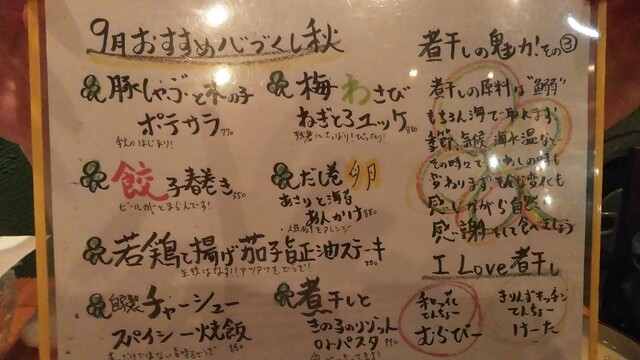 9月おすすめ心づくし秋
豚しゃぶと木の子
ポテサラ 770
秋のはじまり!
餃子春巻き 550
ビールがとまらんです!
若鶏と揚げ茄子旨正油ステーキ
自家製チャーシュー
スパイシー焼飯 880
梅わさび
ねぎとろユッケ 880
だし巻卵
あさりと海苔
あんかけ 880
煮干しと
きの子のリゾット
orパスタ 990
煮干しの魅力!その③
煮干しの原料は"鰯"
もちろん海で取れます!
季節、気候、海水温など
その時々で いわしの味も
変わります。そんな変化も
感じながら自然
感謝をして食べましょう
I Love 煮干し
てんちょー
むらびー
きりんずキッチン
てんちょー
けーた